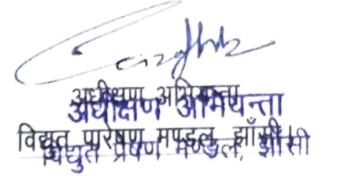 अधीक्षण अभियन्ता
अधीक्षण अभियन्ता
विद्युत पारेषण मण्डल, झाँसी।
विद्युत प्रेषण मण्डल, झाँसी